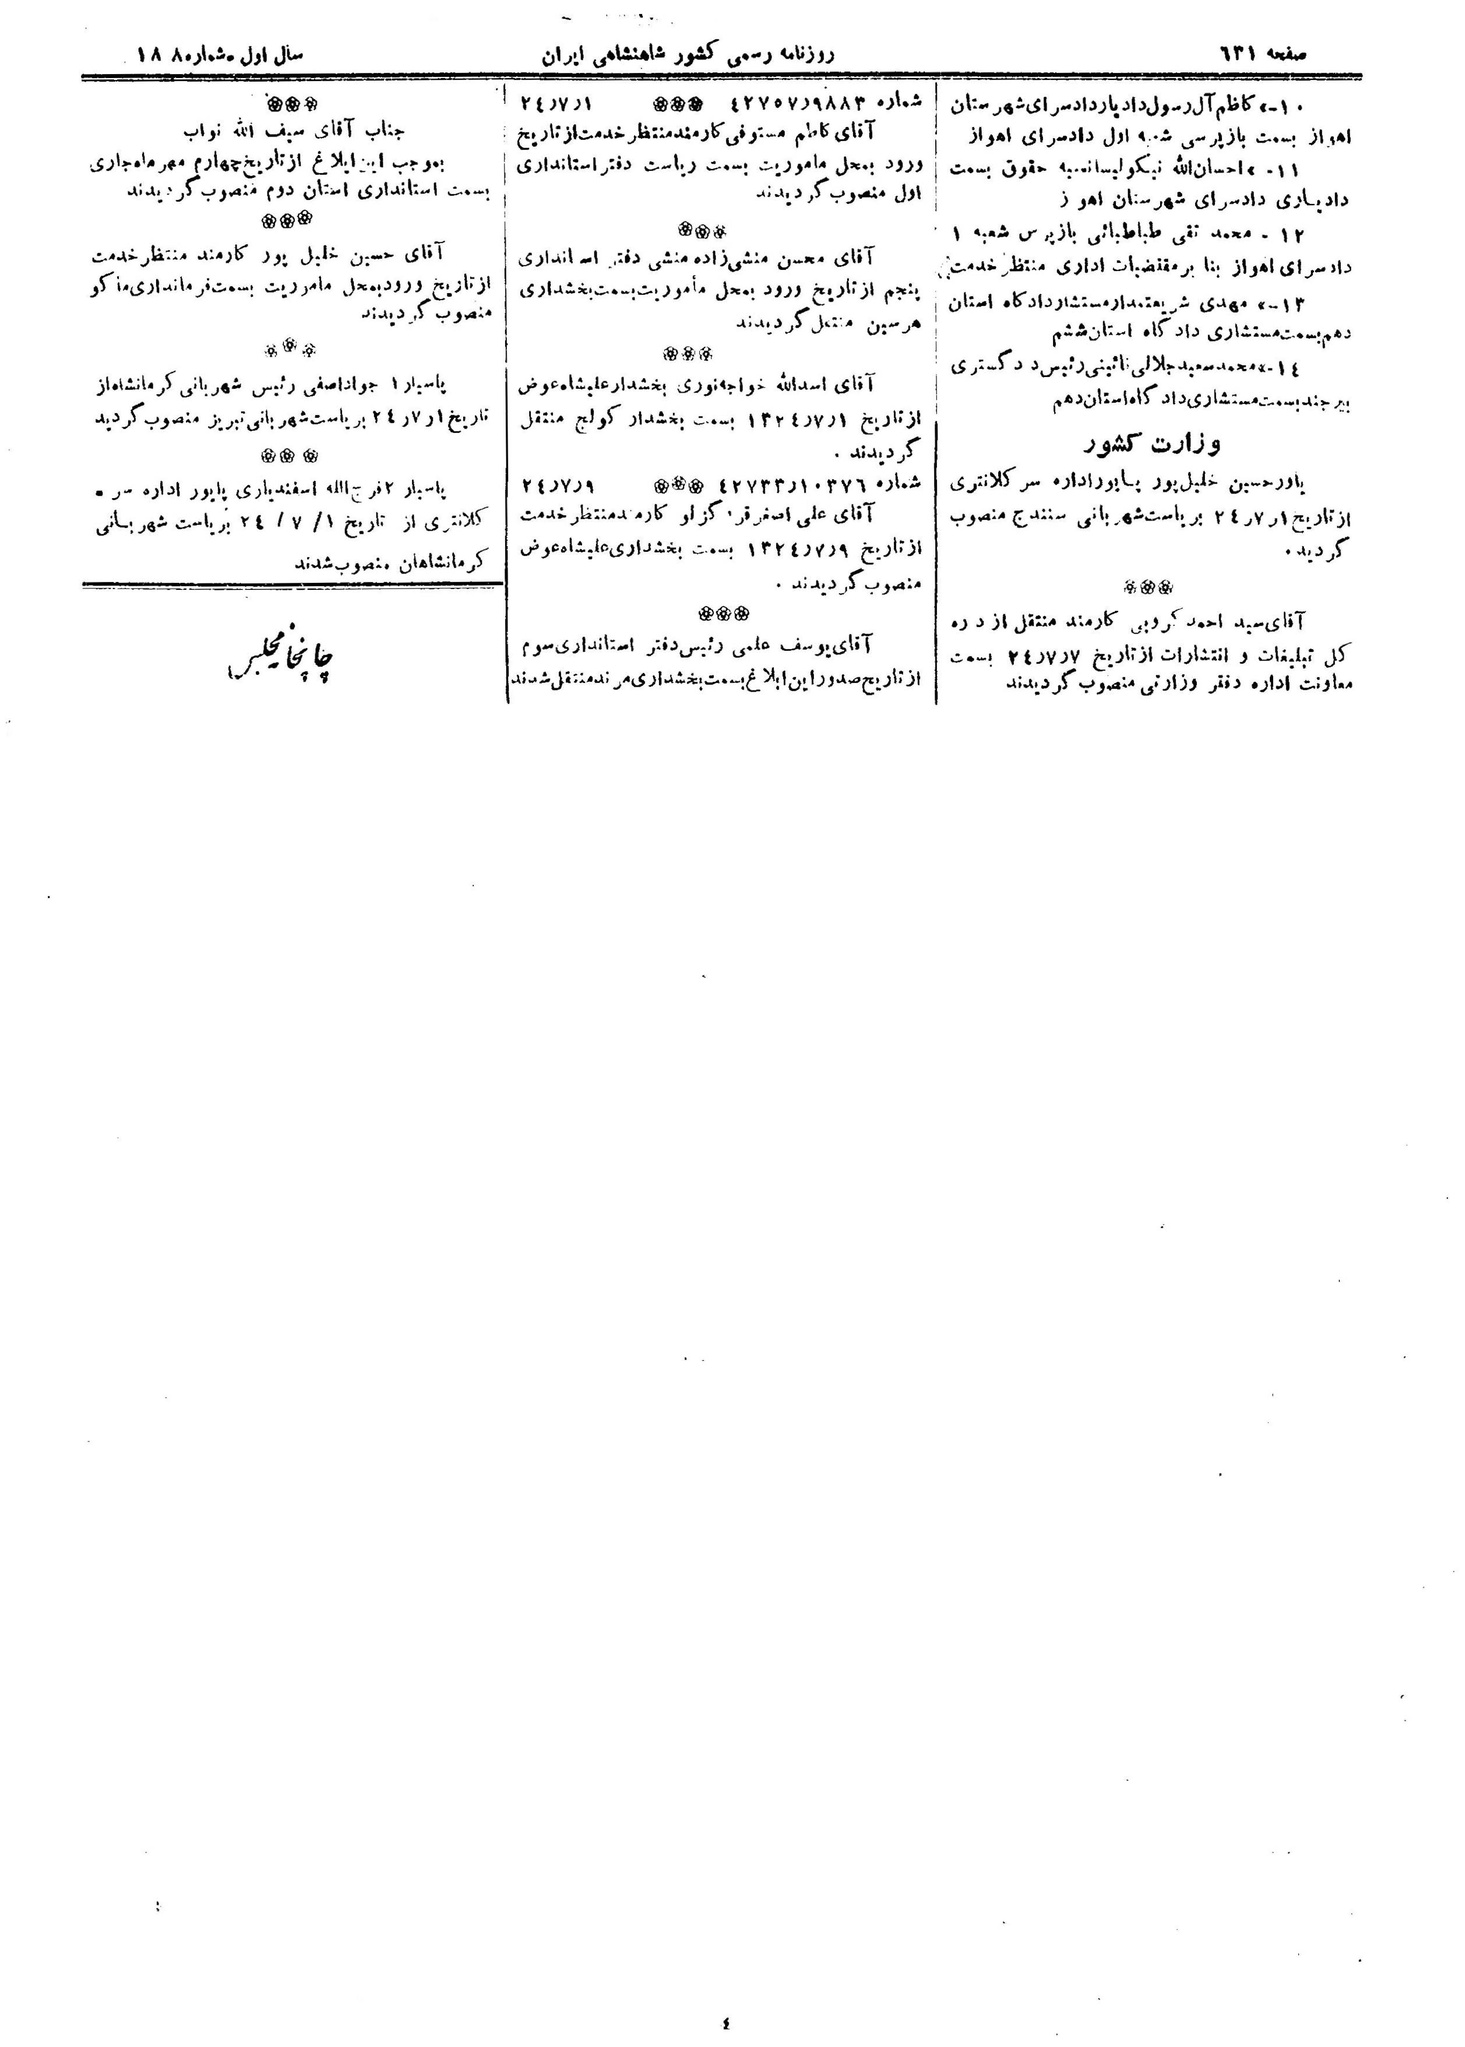 صفحه ٦٣١
روزنامه رسمی کشور شاهنشاهی ایران
سال اول شماره ١٨٨
١٠-» کاظم آل رسول دادیار دادسرای شهرستان
اهواز بسمت بازپرسی شعبه اول دادسرای اهواز
١١- » احسان الله نیکو لیسانسیه حقوق بسمت
دادیاری دادسرای شهرستان اهواز
١٢ - محمد تقی طباطبائی بازپرس شعبه ١
دادسرای اهواز بنا بر مقتضیات اداری منتظر خدمت
١٣-» مهدی شریعتمدار مستشار دادگاه استان
دهم بسمت مستشاری دادگاه استان ششم
١٤-» محمد سعید جلالی نائینی رئیس دادگستری
بیرجند بسمت مستشاری دادگاه استان دهم
وزارت کشور
یاور حسین خلیل پور پایور اداره سر کلانتری
از تاریخ ٢٤ر٧ر١ بریاست شهربانی سنندج منصوب
گردید.
آقای سید احمد کروبی کارمند منتقل از اداره
کل تبلیغات و انتشارات از تاریخ ٢٤ر٧ر٧ بسمت
معاونت اداره دفتر وزارتی منصوب گردیدند
شماره ٤٢٧٥٧ر٩٨٨٣ ٢٤ر٧ر١
آقای کاظم مستوفی کارمند منتظر خدمت از تاریخ
ورود بمحل ماموریت بسمت ریاست دفتر استانداری
اول منصوب گردیدند
آقای محسن منشی زاده منشی دفتر استانداری
پنجم از تاریخ ورود بمحل مأموریت بسمت بخشداری
هرسین منتقل گردیدند
آقای اسدالله خواجه نوری بخشدار علیشاه عوض
از تاریخ ١٣٢٤ر٧ر١ بسمت بخشدار کولج منتقل
گردیدند.
شماره ٤٢٧٣٣ر١٠٣٧٦ ٢٤ر٧ر٩
آقای علی اصغر قراگزلو کارمند منتظر خدمت
از تاریخ ١٣٢٤ر٧ر٩ بسمت بخشداری علیشاه عوض
منصوب گردیدند.
آقای یوسف علمی رئیس دفتر استانداری سوم
از تاریخ صدور این ابلاغ بسمت بخشداری مرند منتقل شدند
جناب آقای سیف الله نواب
بموجب این ابلاغ از تاریخ چهارم مهر ماه جاری
بسمت استانداری استان دوم منصوب گردیدند
آقای حسین خلیل پور کارمند منتظر خدمت
از تاریخ ورود بمحل ماموریت بسمت فرمانداری ماکو
منصوب گردیدند
پاسیار ١ جواد اصفی رئیس شهربانی کرمانشاه از
تاریخ ٢٤ر٧ر١ بریاست شهربانی تبریز منصوب گردید
پاسیار ٢ فرج الله اسفندیاری پایور اداره سر -
کلانتری از تاریخ ٢٤/٧/١ بریاست شهربانی
کرمانشاهان منصوب شدند
چاپخانه مجلس
٤